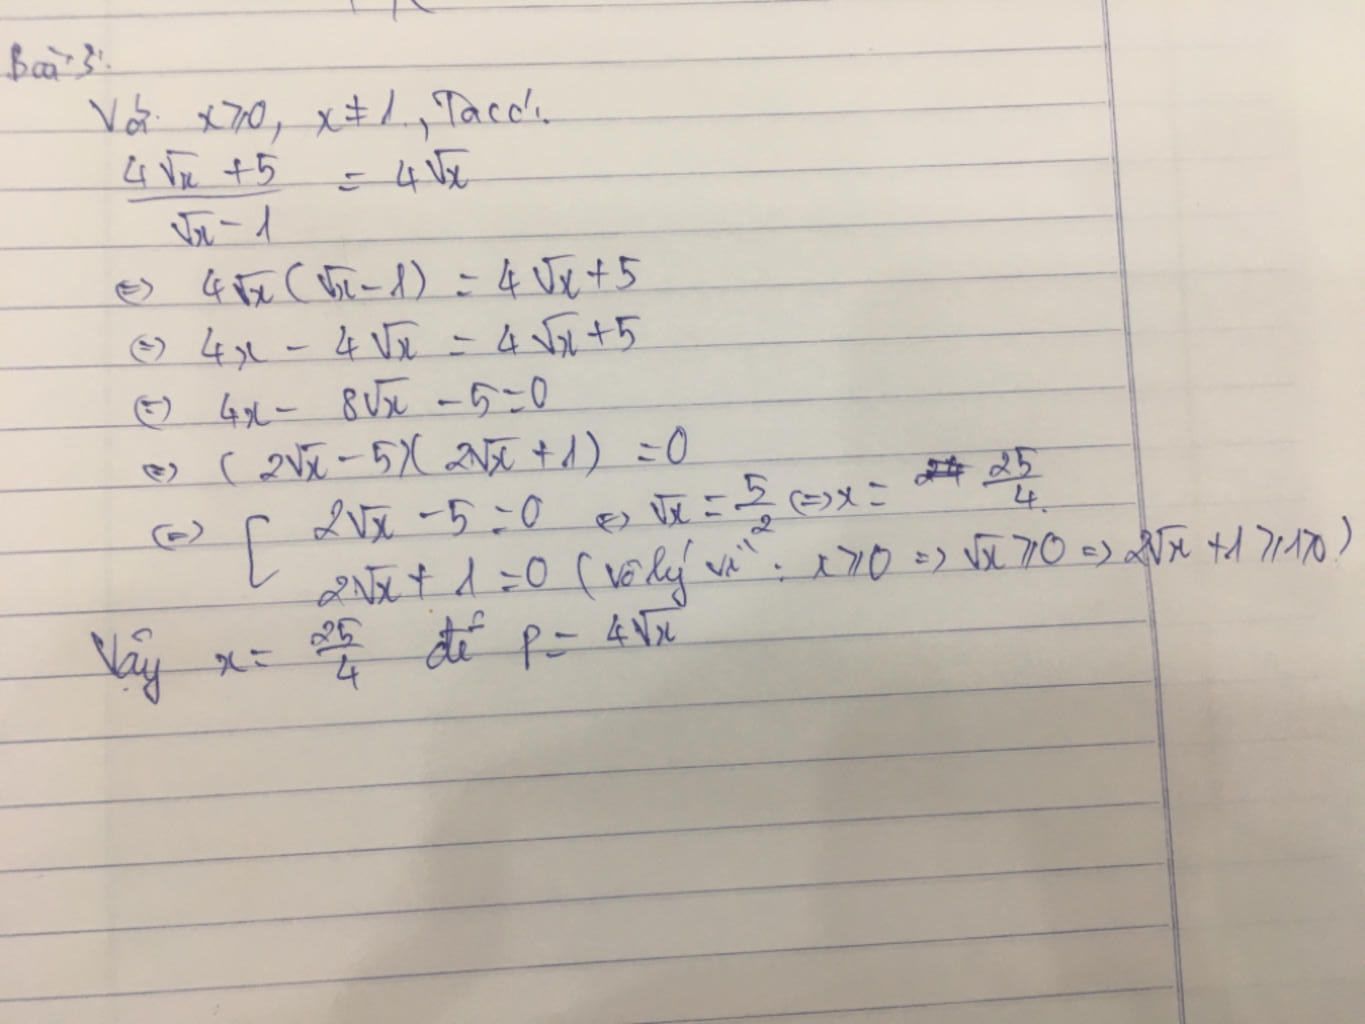 Bài 3:
Với x ≥ 0, x ≠ 1, Ta có:
(4√x + 5)/(√x - 1) = 4√x
⇔ 4√x (√x - 1) = 4√x + 5
⇔ 4x - 4√x = 4√x + 5
⇔ 4x - 8√x - 5 = 0
⇔ (2√x - 5)(2√x + 1) = 0
⇔ [ 2√x - 5 = 0 ⇔ √x = 5/2 ⇔ x = 25/4
2√x + 1 = 0 (vô lý vì: x ≥ 0 ⇒ √x ≥ 0 ⇒ 2√x + 1 ≥ 1 > 0)
Vậy x = 25/4 để P = 4√x